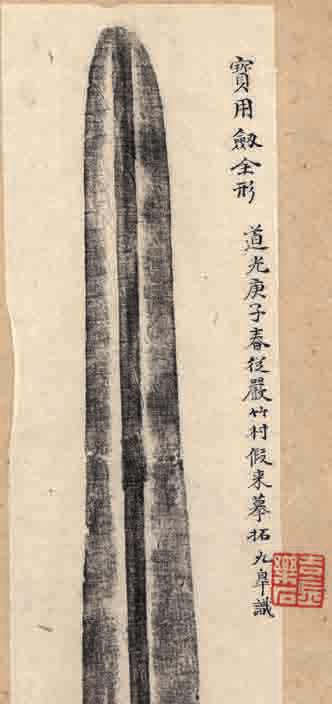 寶用劔全形
道光庚子春從嚴竹村假来摹拓九皋識
吉辰
樂石